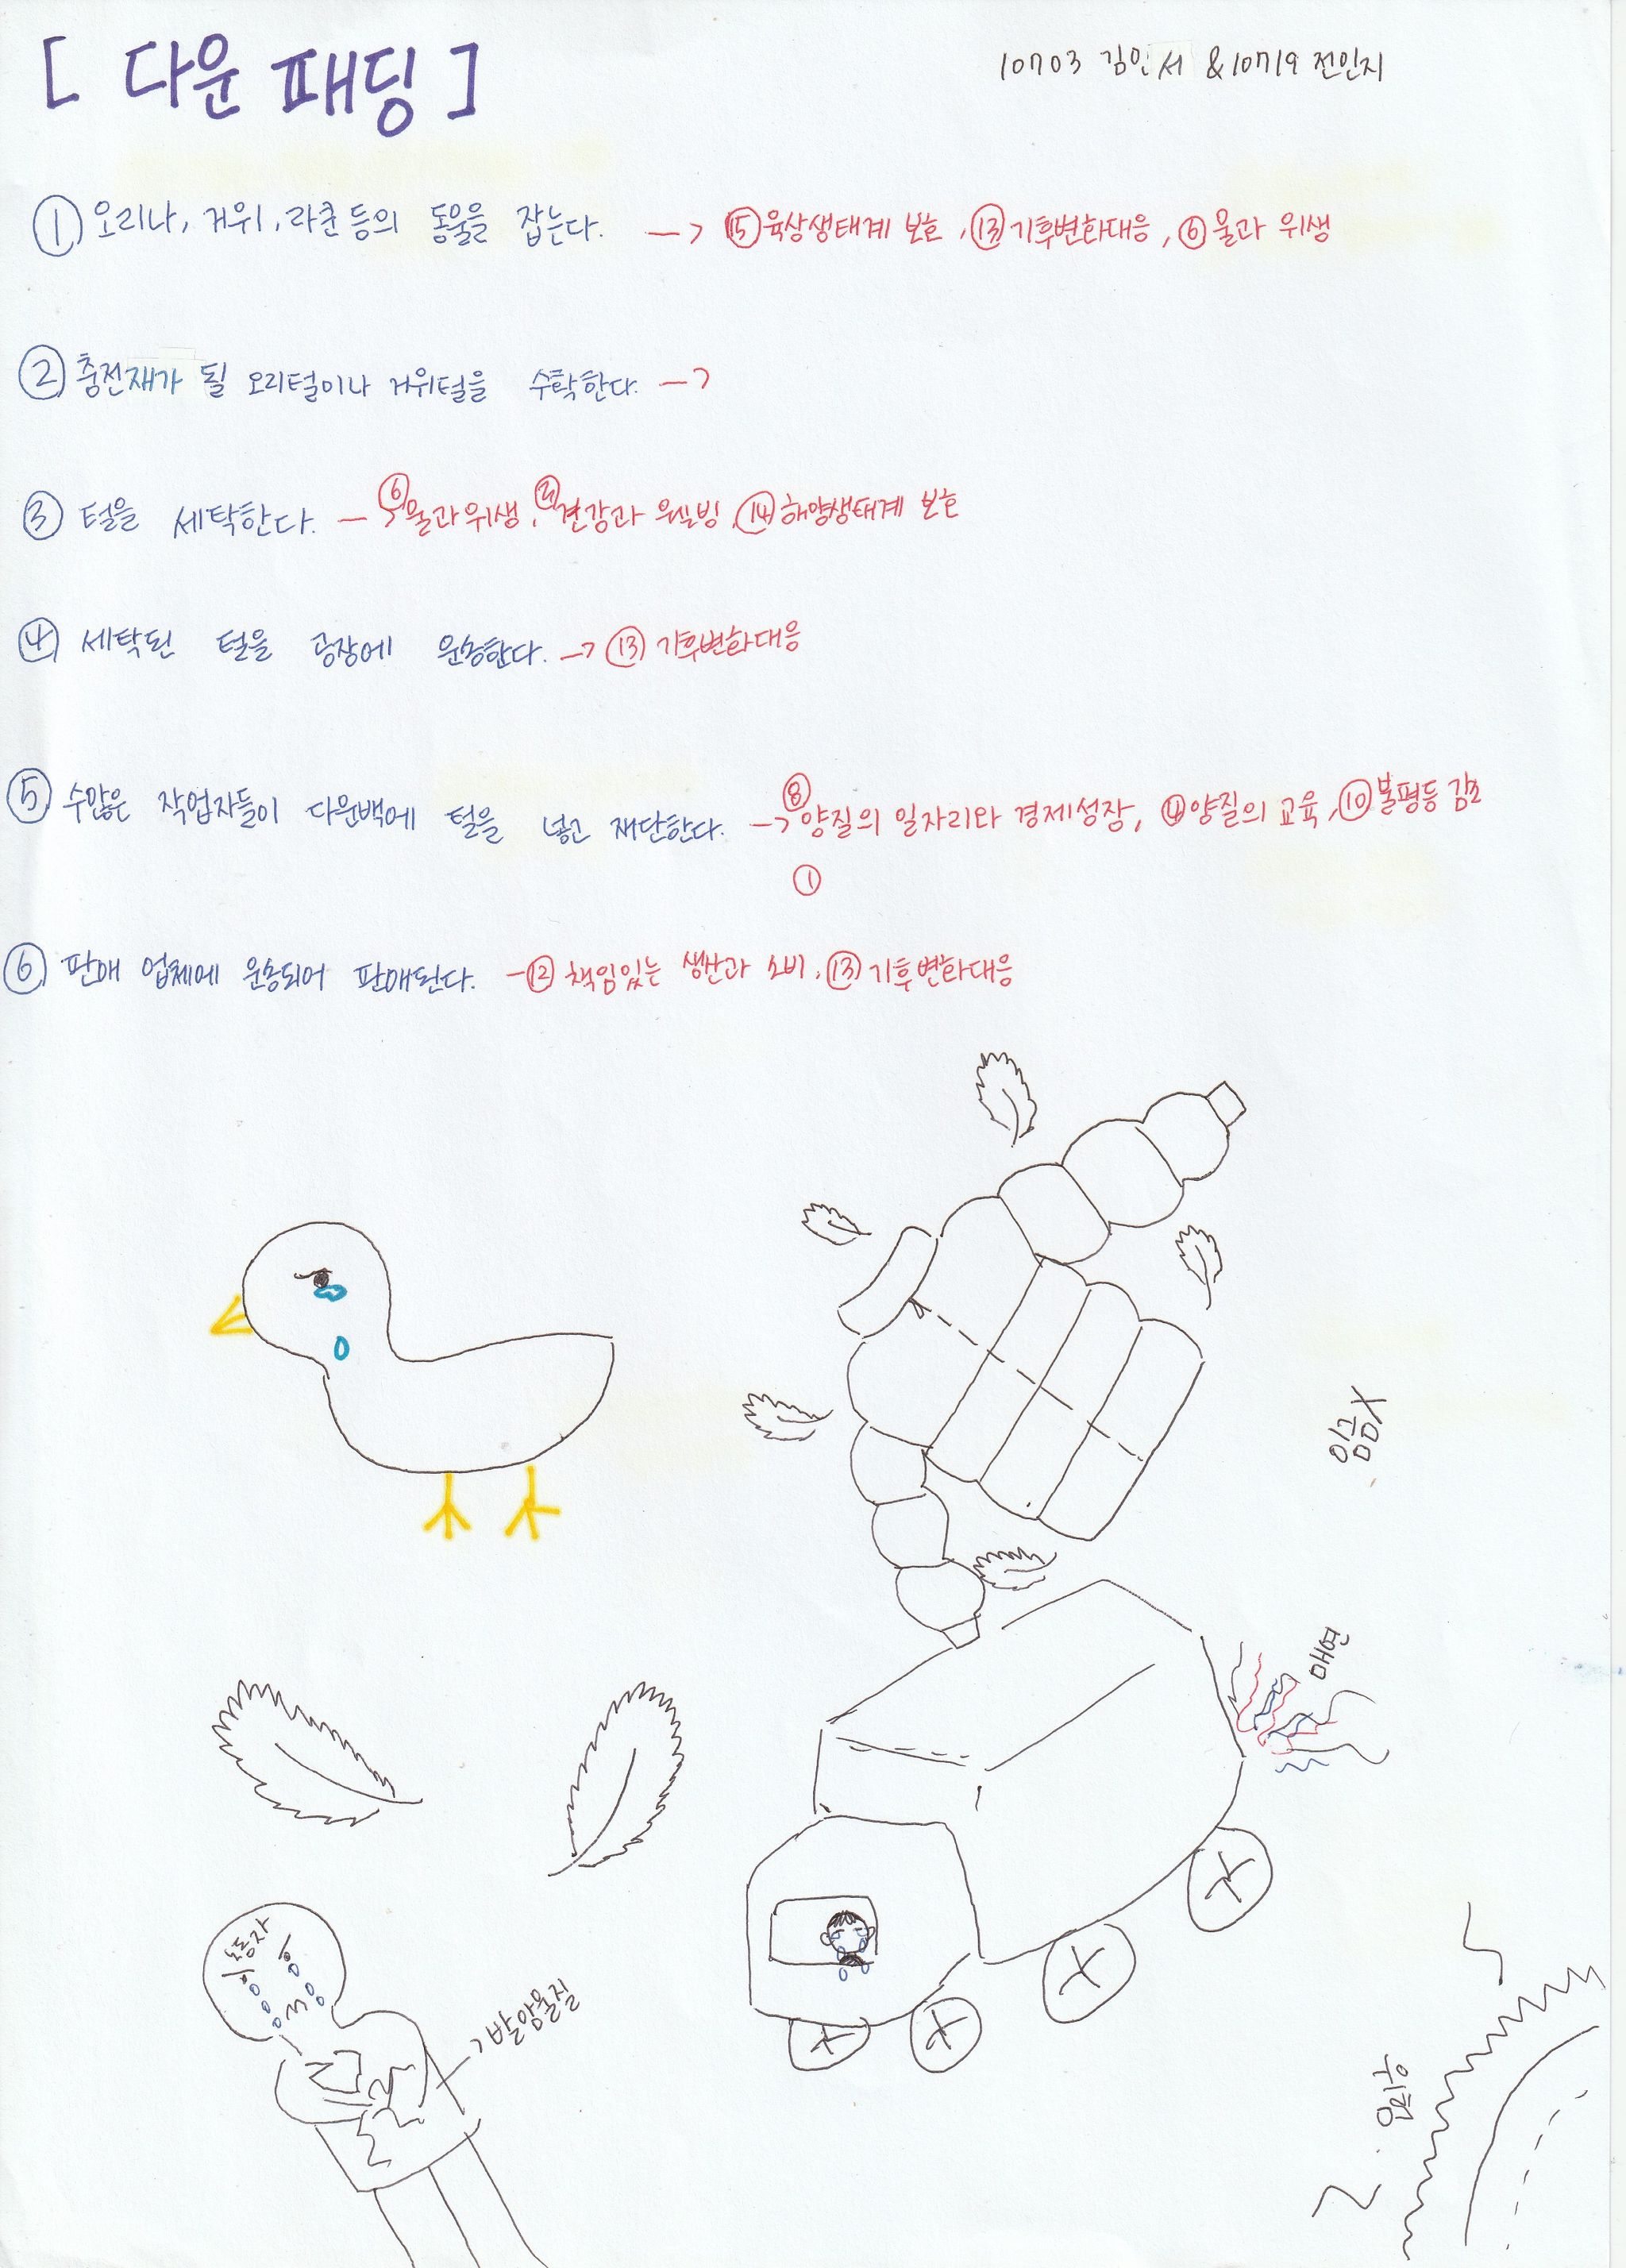 [ 다운 패딩 ]
10703 김인서 & 10719 전인지
① 오리나, 거위, 라쿤 등의 동물을 잡는다. —> ⑮ 육상생태계 보호, ⑬ 기후변화대응, ⑥ 물과 위생
② 충전재가 될 오리털이나 거위털을 수탁한다. —>
③ 털을 세탁한다. —> ⑥ 물과 위생, ③ 건강과 웰빙, ⑭ 해양생태계 보호
④ 세탁된 털을 공장에 운송한다. —> ⑬ 기후변화대응
⑤ 수많은 작업자들이 다운백에 털을 넣고 재단한다. —> ⑧ 양질의 일자리와 경제성장, ④ 양질의 교육, ⑩ 불평등 감소
①
⑥ 판매 업체에 운송되어 판매된다. — ⑫ 책임있는 생산과 소비, ⑬ 기후변화대응
임금X
매연
노동자
발암물질
위험